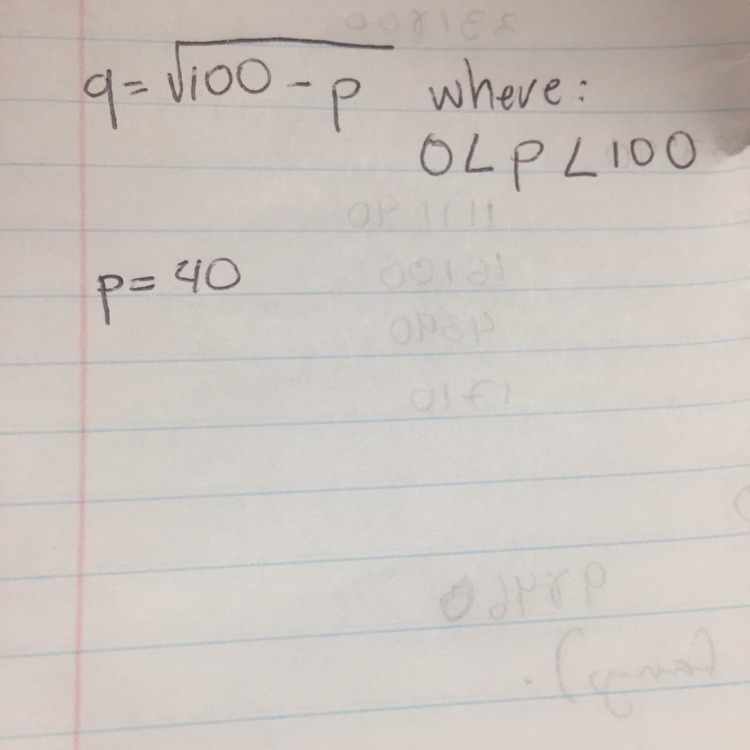 q = √100 - p where:
0 < p < 100
p = 40